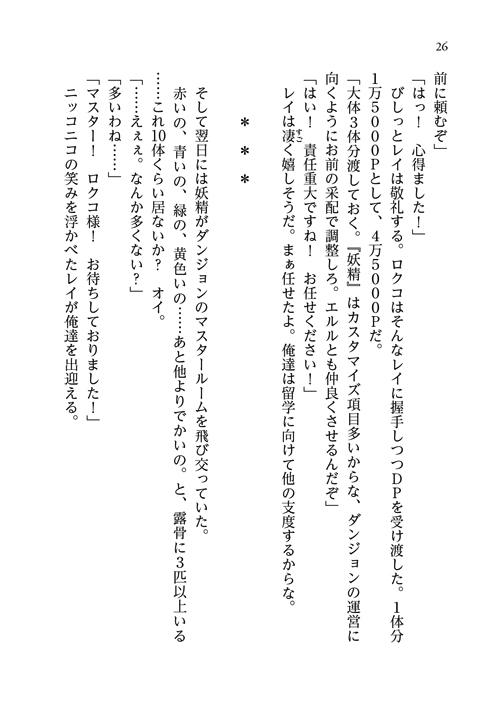 26
前に頼むぞ」
「はっ！　心得ました！」
　びしっとレイは敬礼する。ロクコはそんなレイに握手しつつＤＰを受け渡した。１体分
１万５０００Ｐとして、４万５０００Ｐだ。
「大体３体分渡しておく。『妖精』はカスタマイズ項目多いからな、ダンジョンの運営に
向くようにお前の采配で調整しろ。エルルとも仲良くさせるんだぞ」
「はい！　責任重大ですね！　お任せください！」
　レイは凄く嬉しそうだ。まぁ任せたよ。俺達は留学に向けて他の支度するからな。
すご
＊　＊　＊
　そして翌日には妖精がダンジョンのマスタールームを飛び交っていた。
　赤いの、青いの、緑の、黄色いの……あと他よりでかいの。と、露骨に３匹以上いる
……これ10体くらい居ないか？　オイ。
「……えぇぇ。なんか多くない？」
「多いわね……」
「マスター！　ロクコ様！　お待ちしておりました！」
　ニッコニコの笑みを浮かべたレイが俺達を出迎える。